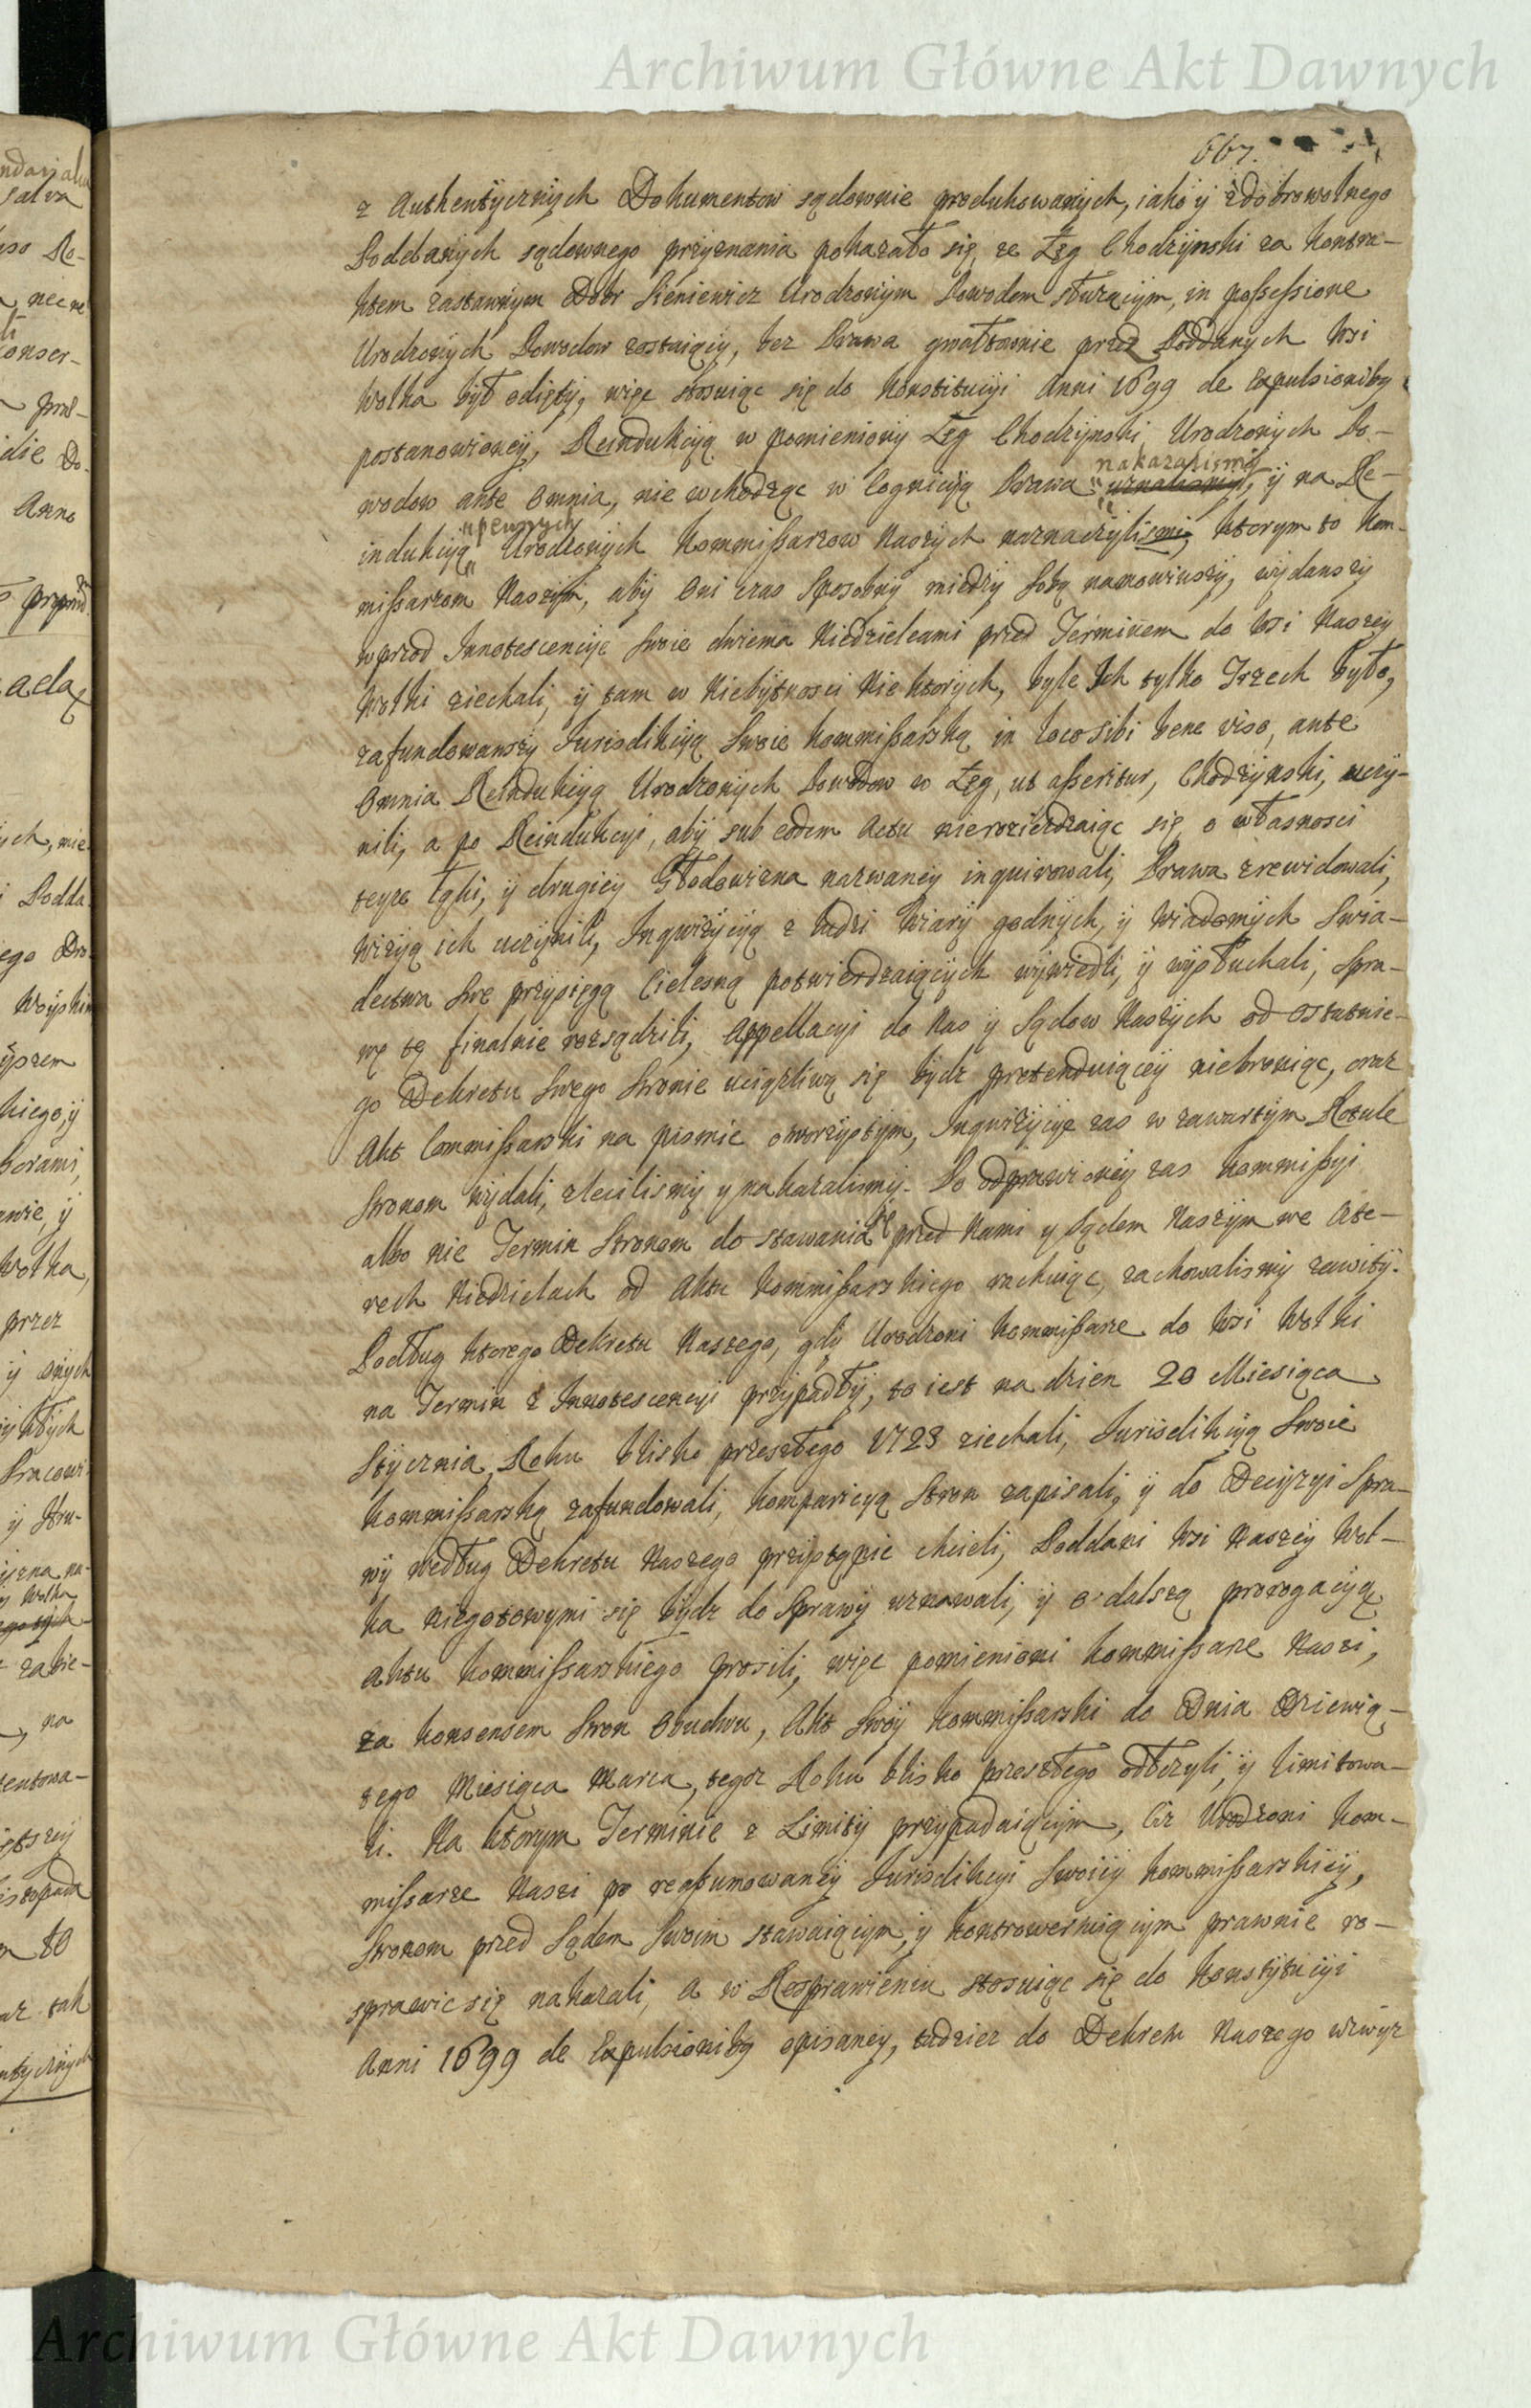 Archiwum Główne Akt Dawnych
667.
z Authentycznych Dokumentow sądownie produkowanych, iako y z dobrowolnego
Poddanych sądownego przyznania pokazało się, że Łęg Chodzynski za kontra-
ktem zastawnym Dobr Sieniewicz Urodzonym Powodom służącym, in possessione
Urodzonych Powodow zostaiący, bez Prawa gwałtownie przez Poddanych Wsi
Wolka był odięty, więc stosuiąc się do Konstitucyi Anni 1699 de Expulsionibq
postanowioney, Reindukcyą w pomieniony Łęg Chodzynski, Urodzonych Po-
nakazalismy
wodow ante omnia, nie wchodząc w Cognicyą Prawa uznalismy, y na Re-
upewnych
indukcyą Urodzonych Kommissarzow Naszych naznaczylismy, ktorym to Kom-
missarzom Naszym, aby oni czas sposobny miedzy sobą namowiwszy, wydawszy
wprzod Innotescencye swoie dwiema Niedzielami przed Terminem do Wsi Naszey
Wolki ziechali, y tam w Niebytnosci Niektorych, byle Ich tylko Trzech było,
zafundowawszy Jurisdikcyą Swoie Kommissarską in loco sibi bene viso, ante
omnia Reindukcyą Urodzonych Powodow w Łęg, ut asseritur, Chodzynski, uczy-
nili, a po Reindukcyi, aby sub eodem Actu nierozieżdzaiąc się o własnosci
teyze Łąki, y drugiey Głodowizna nazwaney inquirowali, Prawa zrewidowali,
Wizyą ich uczynili, Inqwizycyą z ludzi Wiary godnych, y wiadomych swia-
dectwa swe przysięgą Cielesną potwierdzaiących wywiedli, y wysłuchali, Spra-
wę tę finalnie rozsądzili, Appellacyi do Nas y Sądow Naszych od ostatnie-
go Dekretu swego stronie uciążliwą się bydz pretenduiącey niebroniąc, oraz
Akt Commissarski na pismie otworzystym, Inquizycye zas w zawartym Rotule
stronom wydali, zlecilismy y nakazalismy. Po odprawioney zas Kommissyi
albo nie Termin stronom do stawania się przed Nami y Sądem Naszym we czte-
rech Niedzielach od Aktu Kommissarskiego rachuiąc, zachowalismy zawity.
Podług ktorego Dekretu Naszego, gdy Urodzoni Kommissarze do Wsi Wolki
na Termin z Innotescencyi przypadły, to iest na dzien 20 Miesiąca
Stycznia, Roku blisko przeszłego 1723 ziechali, Jurisdikcyą Swoie
Kommissarską zafundowali, komparicyą stron zapisali, y do Decyzyi Spra-
wy według Dekretu Naszego przystąpic chcieli, Poddani Wsi Naszey Wol-
ka niegotowymi się bydz do Sprawy uznawali, y o dalszą prorogacyą
aktu Kommissarskiego prosili, więc pomienioni Kommissarze Nasi,
za konsensem stron obudwu, Akt swoy Kommissarski do Dnia Dziewią-
tego Miesiąca Marca, tegoz Roku blisko przeszłego odłozyli, y limitowa-
li. Na ktorym Terminie z Limity przypadaiącym, Ciz Urodzoni Kom-
missarze Nasi po reassumowaney Jurisdikcyi Swoiey Kommissarskiey,
stronom przed Sądem Swoim stawaiącym, y kontrowertuiącym prawnie ro-
sprawic się nakazali, a w Rosprawieniu stosuiąc się do Konstytucyi
Anni 1699 de Expulsionibq opisaney, tudziez do Dekretu Naszego wzwyz
Archiwum Główne Akt Dawnych